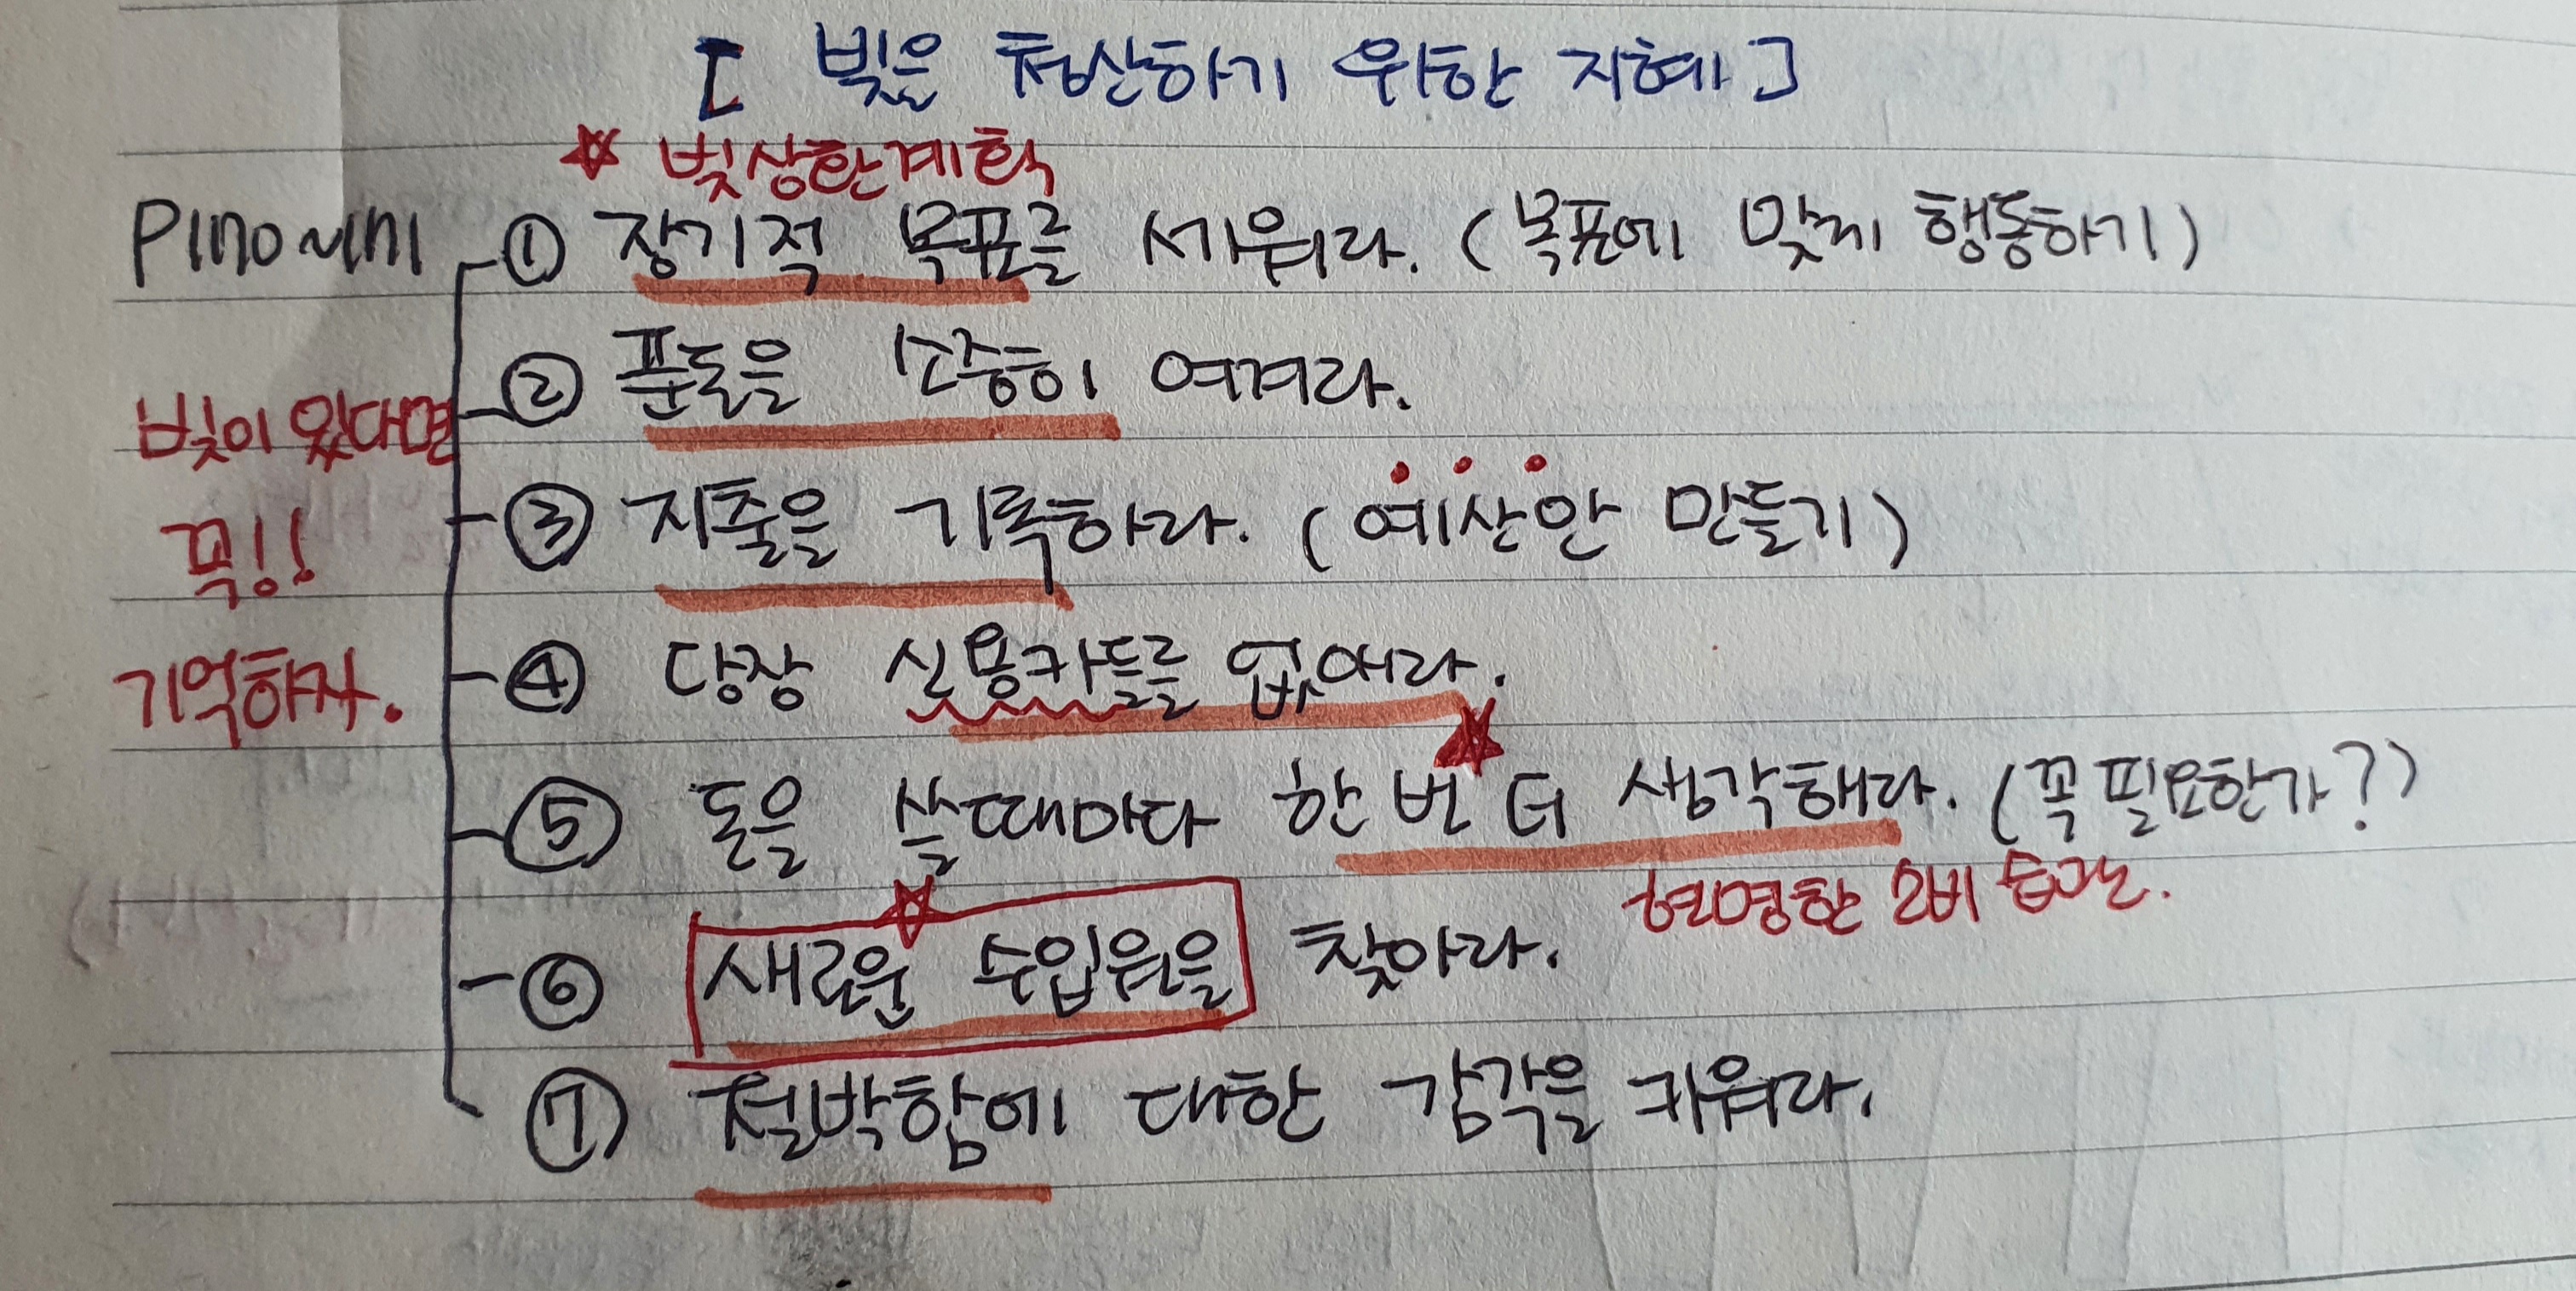 [ 빚을 청산하기 위한 지혜 ]
☆ 빚상한계획
① 장기적 목표를 세워라. (목표에 맞게 행동하기)
② 푼돈을 소중히 여겨라.
빚이 있다면
꼭!!
기억하자.
③ 지출을 기록하라. (예산안 만들기)
④ 당장 신용카드를 없애라.
⑤ 돈을 쓸때마다 한번 더 생각해라. (꼭 필요한가?)
현명한 소비 습관.
⑥ 새로운 수입원을 찾아라.
⑦ 절박함에 대한 감각을 키워라.